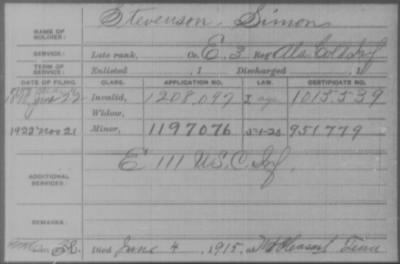 NAME OF SOLDIER: Stevenson, Simon
SERVICE: Late rank, Co. E, 3 Reg't Ala. Col'd Inf
TERM OF SERVICE: Enlisted , 1 Discharged , 1
DATE OF FILING. CLASS. APPLICATION NO. LAW. CERTIFICATE NO.
1898 June 22 Invalid, 1208,097 1015539
Widow,
1922 Nov 21 Minor, 1197076 951779
ADDITIONAL SERVICES: E 111 U.S.C. Inf.
REMARKS:
Died June 4, 1915, at Mt Pleasant Tenn